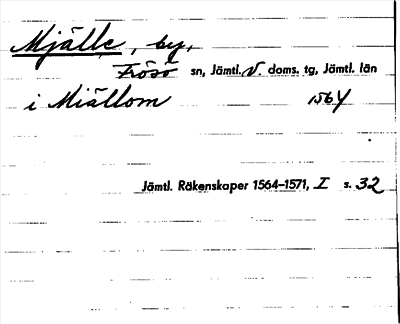 Mjälle, by,
Frösö sn, Jämtl. V. doms. tg, Jämtl. län
i Miällom 1564
Jämtl. Räkenskaper 1564–1571, I s. 32